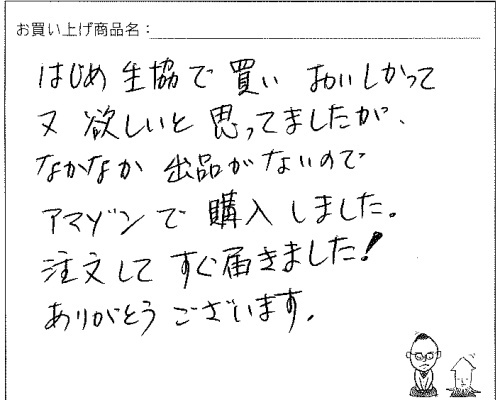 お買い上げ商品名：
はじめ 生協で 買い おいしかって
又 欲しいと 思ってましたが、
なかなか 出品がないので
アマゾンで 購入 しました。
注文して すぐ届きました!
ありがとう ございます。